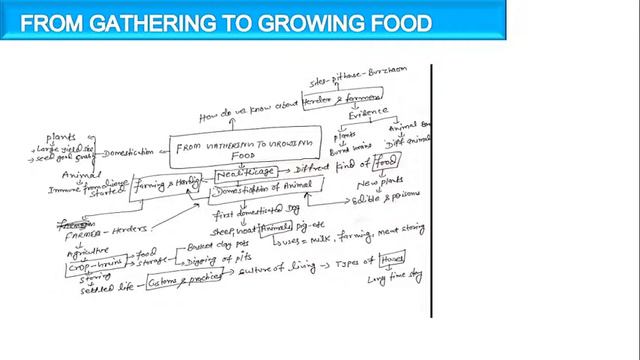 FROM GATHERING TO GROWING FOOD
sites-Pithouse-Burzhaom
How do we know about Herder & farmers
Evidence
plants
Animal
Burnt grains
Diff animal
plants
Large yield
seed good quality
Domestication
FROM GATHERING TO GROWING FOOD
Animal
Immune from
Started
farming & Herding
Neolithic age
Diffrent kind of food
Domestication of Animal
New plants
Edible & poisons
first domesticated Dog
FARMER - Herders
sheep, Animals pig-etc
uses = Milk, farming, meat storing
Agriculture
CROP - grains
food
Storage
Basket clay pots
Digging of pits
Storing
settled life
Customs & practices
culture of living
Types of Houses
Long time stay